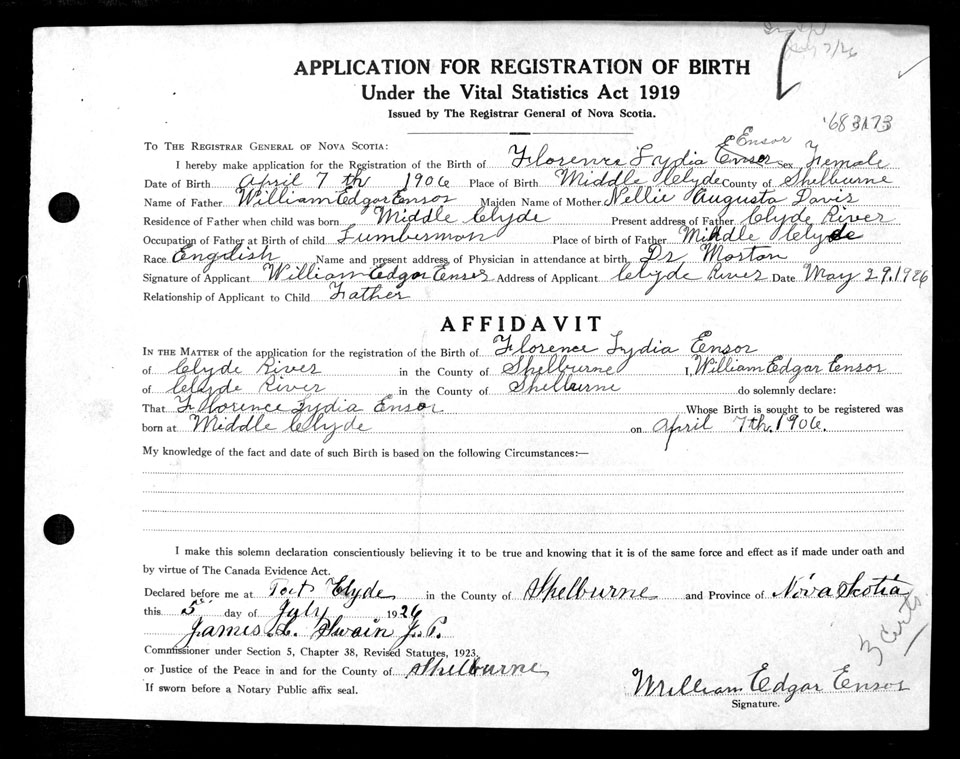 7/26
APPLICATION FOR REGISTRATION OF BIRTH
Under the Vital Statistics Act 1919
Issued by The Registrar General of Nova Scotia.
683173
TO THE REGISTRAR GENERAL OF NOVA SCOTIA:
Ensor
I hereby make application for the Registration of the Birth of Florence Lydia Ensor Sex Female
Date of Birth April 7th 1906 Place of Birth Middle Clyde County of Shelburne
Name of Father William Edgar Ensor Maiden Name of Mother Nellie Augusta Davis
Residence of Father when child was born Middle Clyde Present address of Father Clyde River
Occupation of Father at Birth of child Lumberman Place of birth of Father Middle Clyde
Race English Name and present address of Physician in attendance at birth Dr Morton
Signature of Applicant William Edgar Ensor Address of Applicant Clyde River Date May 29.1926
Relationship of Applicant to Child Father
AFFIDAVIT
IN THE MATTER of the application for the registration of the Birth of Florence Lydia Ensor
of Clyde River in the County of Shelburne I, William Edgar Ensor
of Clyde River in the County of Shelburne do solemnly declare:
That Florence Lydia Ensor Whose Birth is sought to be registered was
born at Middle Clyde on April 7th. 1906.
My knowledge of the fact and date of such Birth is based on the following Circumstances:—
I make this solemn declaration conscientiously believing it to be true and knowing that it is of the same force and effect as if made under oath and
by virtue of The Canada Evidence Act.
Declared before me at Port Clyde in the County of Shelburne and Province of Nova Scotia
this 5 day of July 1926
James L. Swain J.P.
Commissioner under Section 5, Chapter 38, Revised Statutes, 1923,
or Justice of the Peace in and for the County of Shelburne
If sworn before a Notary Public affix seal.
William Edgar Ensor
Signature.